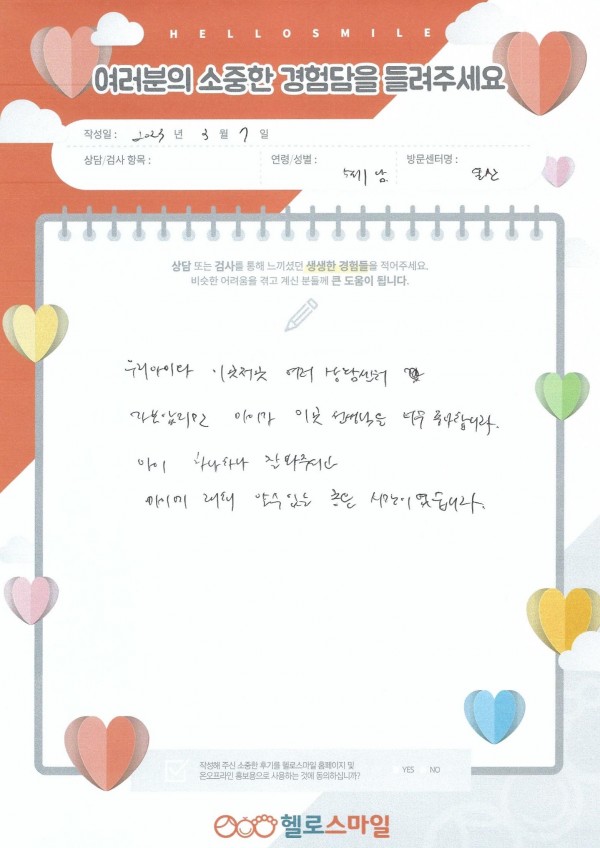 HELLOSMILE
여러분의 소중한 경험담을 들려주세요
작성일 : 2023 년 3 월 7 일
상담/검사 항목 : 연령/성별 : 남 방문센터명 : 일산
상담 또는 검사를 통해 느끼셨던 생생한 경험들을 적어주세요.
비슷한 어려움을 겪고 계신 분들께 큰 도움이 됩니다.
우리아이랑 이곳저곳 여러 상담센터
가보았지만 아이가 이곳 선생님을 너무 좋아합니다.
아이 하나하나 잘 봐주시고
아이에 대해 알수있는 좋은 시간이였습니다.
작성해 주신 소중한 후기를 헬로스마일 홈페이지 및
온오프라인 홍보용으로 사용하는 것에 동의하십니까? YES NO
헬로스마일